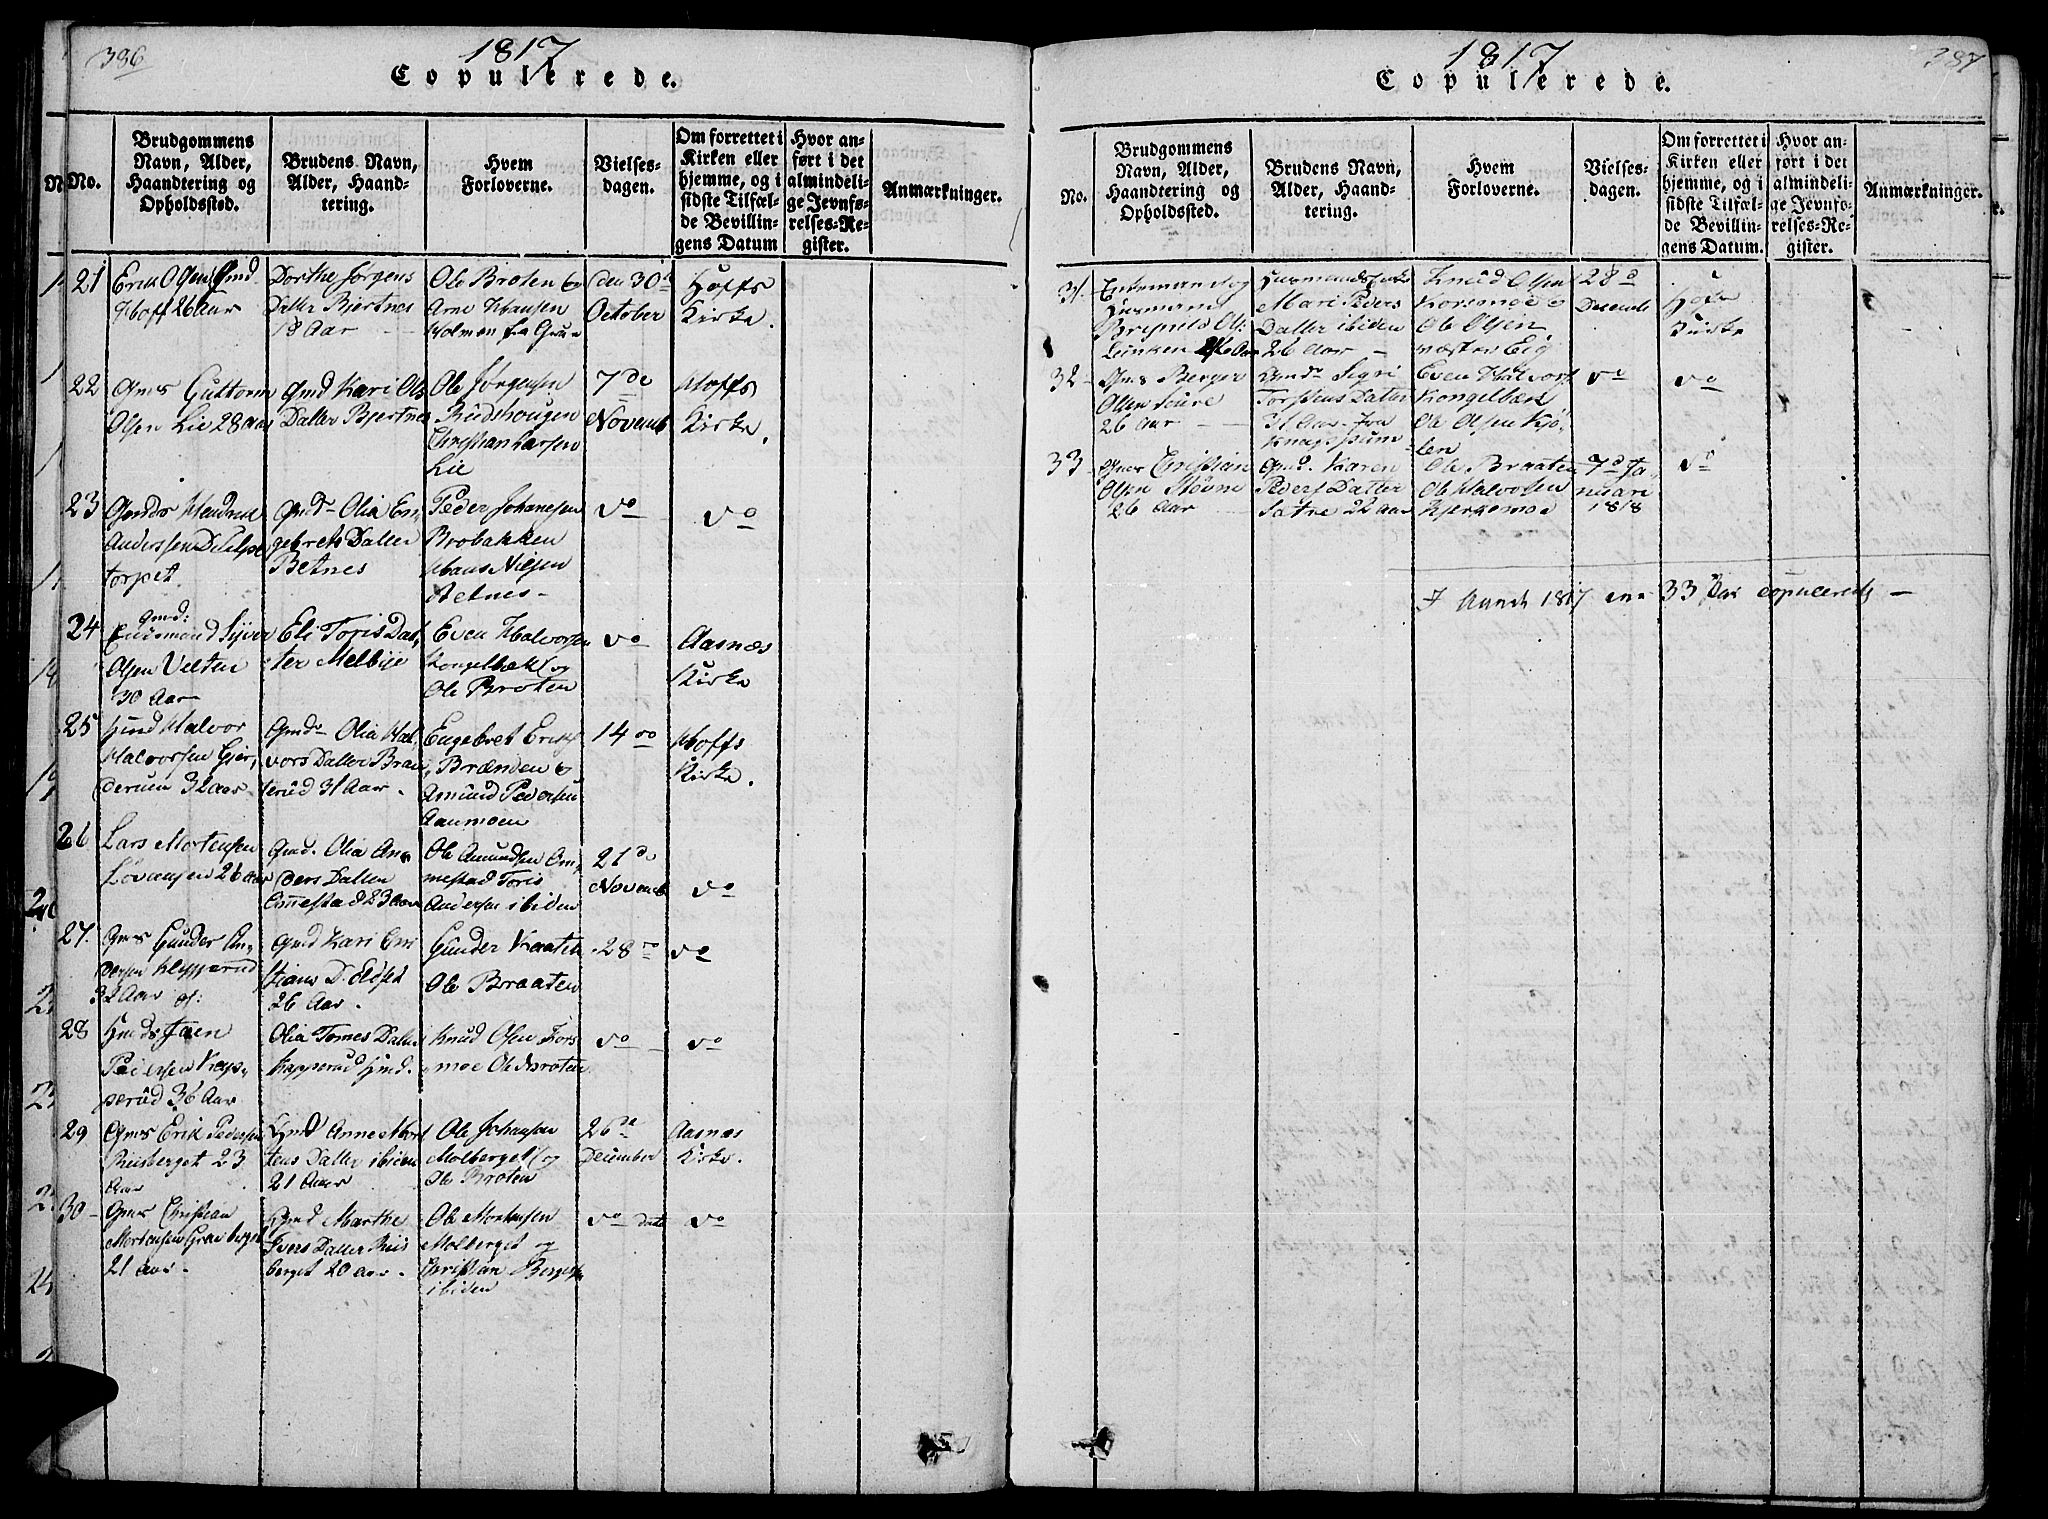 386
1817
Copulerede.
No.
Brudgommens
Navn, Alder,
Haandtering og
Opholdssted.
Brudens Navn,
Alder, Haand-
tering.
Hvem
Forloverne.
Vielses-
dagen.
Om forrettet i
Kirken eller
hjemme, og i
sidste Tilfæl-
de Bevillin-
gens Datum
Hvor an-
ført i det
almindeli-
ge Jevnfø-
relses-Re-
gister.
Anmærkninger.
21
Erik Olsen
Hoff 26 Aar
Dorthe Jørgens
Datter Bjertnes
18 Aar
Ole Broten og
Arne Hansen
Holmen
den 30
October
Hoffs
Kirke.
22
Guttorm
Olsen Lie 28 aar
Gmd Kari Ols
Datter Bjertnes
Ole Jørgensen
Rudshougen
Christian Larsen
Lie
7de
Novemb
Hoffs
Kirke.
23
Anderssen
torpet.
Gmd Olia En
gebrets Datter
Betnes
Peder Johanesen
Brobakken
Hans Nilsen
Aetnes -
do
do
24
Gmd:
Enkemand Syver
Olsen Velten
30 Aar
Eli Toris Dat,
ter Melbye
Even Halvorsen
Kongelbæk og
Ole Broten
do
Aasnæs
Kirke
25
Halvor
Halvorsen Gjer,
derud 32 aar
Gmd Olia Hal,
vors Datter Bran
terud 31 Aar.
Engebret Eriks
Brænden og
Amund Pedersen
Aaumoen
14 do
Hoffs
Kirke.
26
Lars Mortensen
26 aar
Gmd. Olia An,
ders Datter
Emestad 23 aar
Ole Amundsen Om,
mestad Toris
Andersen ibiden
21 de
Novemb
do
27.
Gunder An,
dersen Klepperud
32 Aar
Gmd Kari
stians D.
26 Aar.
Gunder Kaaten
Ole Braaten
28
do
28
Joen
Pedersen Kap,
perud 36 Aar
Olia Tomes Datter
Kapperud Hmd.
Knud Olsen Kors
moe Ole Broten
do
do
29
Erik Pedersen
Riisberget 23
Aar
Gmd Anne Mor
tens Datter ibiden
21 Aar
Ole Johansen
Molberget og
Ole Broten
26 de
December
Aasnæs
Kirke.
30
Christian
Mortensen Gravberget
21 aar.
Gmd Marthe
Ivers Datter Riis
berget 20 aar.
Ole Mortensen
Molberget og
Christian Bergersen
ibiden
do dato
do
1817
387
Copulerede.
No.
Brudgommens
Navn, Alder,
Haandtering og
Opholdssted.
Brudens Navn,
Alder, Haand-
tering.
Hvem
Forloverne.
Vielses-
dagen.
Om forrettet i
Kirken eller
hjemme, og i
sidste Tilfæl-
de Bevillin-
gens Datum.
Hvor an-
ført i det
almindeli-
ge Jevnfø-
relses-Re-
gister.
Anmærkninger.
31
Enkemand og
Husmand
Mari Peders
Datter ibiden
26 Aar -
Knud Olsen
Korsmoe og
Ole Olsen
28 d
Decemb
Kirke
32
Berger
Olsen
26 Aar
Sigri
Torstens Datter
31 Aar fra
Even Halvors
Kongelbæk
Ole Olsen Kjø,
len
do
do
33
Christian
Olsen
26 Aar
Gmd. Karen
Peders Datter
Sætre 22 aar
Ole Braaten
Ole Halvorsen
Kjerkemoe
7 d Ja,
nuari
1818
do
I Aaret 1817 ere 33 Par copulerede -